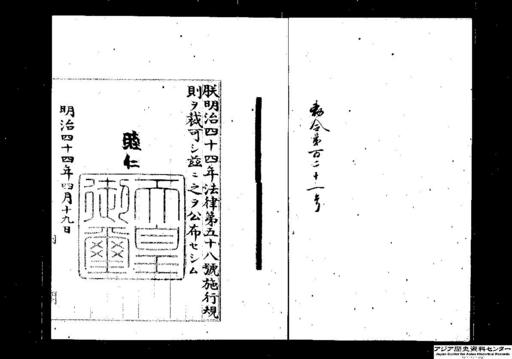 勅令第百二十一号
朕明治四十四年法律第五十八號施行規
則ヲ裁可シ茲ニ之ヲ公布セシム
睦仁
天皇
御璽
明治四十四年四月十九日
アジア歴史資料センター
Japan Center for Asian Historical Records